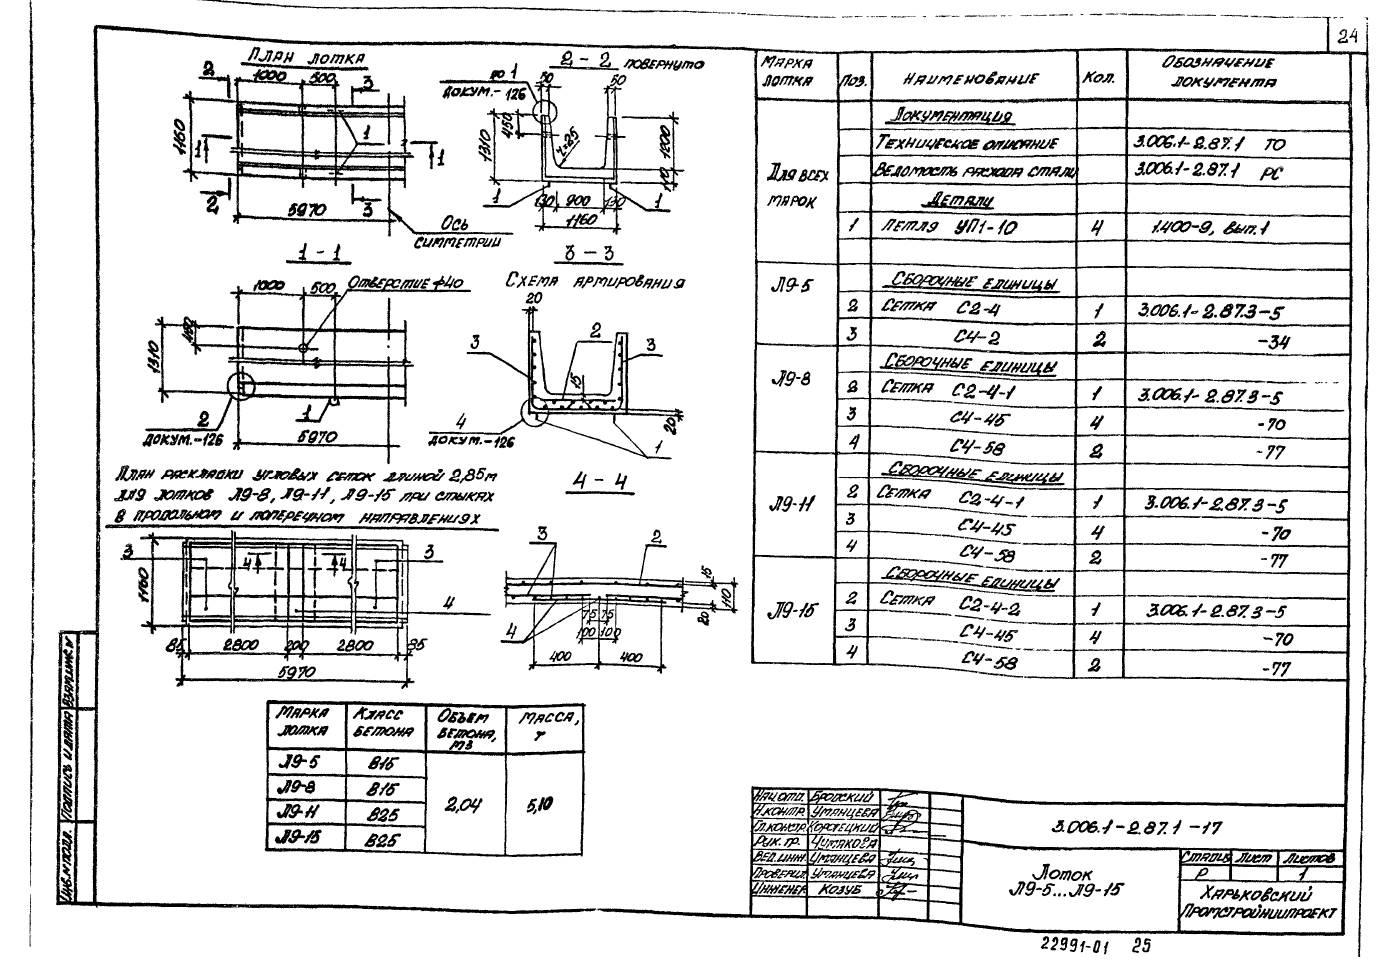 24
План лотка
1000
500
2
3
1160
1
1
1
2
3
5970
Ось
симметрии
по 1
докум.-126
2-2 повернуто
50
50
450
1310
r=25
1200
110
1
130
900
130
1
1160
1-1
1000
500
Отверстие ф40
482
1310
2
докум.-126
1
5970
3-3
Схема армирования
20
2
3
3
15
4
докум.-126
1
20
План раскладки угловых сеток длиной 2,85м
для лотков Л9-8, Л9-11, Л9-15 при стыках
в продольном и поперечном направлениях
3
4
4
3
1160
4
85
2800
200
2800
85
5970
4-4
3
2
15
110
20
75
75
4
100
100
400
400
Марка лотка
Поз.
Наименование
Кол.
Обозначение документа
Для всех марок
Документация
Техническое описание 3.006.1-2.87.1 ТО
Ведомость расхода стали 3.006.1-2.87.1 РС
Детали
1 Петля УП1-10 4 1.400-9, вып.1
Л9-5
Сборочные единицы
2 Сетка С2-4 1 3.006.1-2.87.3-5
3 С4-2 2 -34
Л9-8
Сборочные единицы
2 Сетка С2-4-1 1 3.006.1-2.87.3-5
3 С4-45 4 -70
4 С4-58 2 -77
Л9-11
Сборочные единицы
2 Сетка С2-4-1 1 3.006.1-2.87.3-5
3 С4-45 4 -70
4 С4-58 2 -77
Л9-15
Сборочные единицы
2 Сетка С2-4-2 1 3.006.1-2.87.3-5
3 С4-45 4 -70
4 С4-58 2 -77
Марка лотка
Класс бетона
Объем бетона, м3
Масса, т
Л9-5 В15
Л9-8 В15
Л9-11 В25
Л9-15 В25
2,04
5,10
Инв.№подл.
Подпись и дата
Взам.инв.№
Нач.отд. Бродский
Н.контр. Уманцева
Гл.констр. Коротецкий
Рук.гр. Чумакова
Вед.инж. Уманцева
Проверил Уманцева
Инженер Козуб
3.006.1-2.87.1-17
Лоток
Л9-5...Л9-15
Стадия Лист Листов
Р 1
Харьковский
Промстройниипроект
22991-01 25